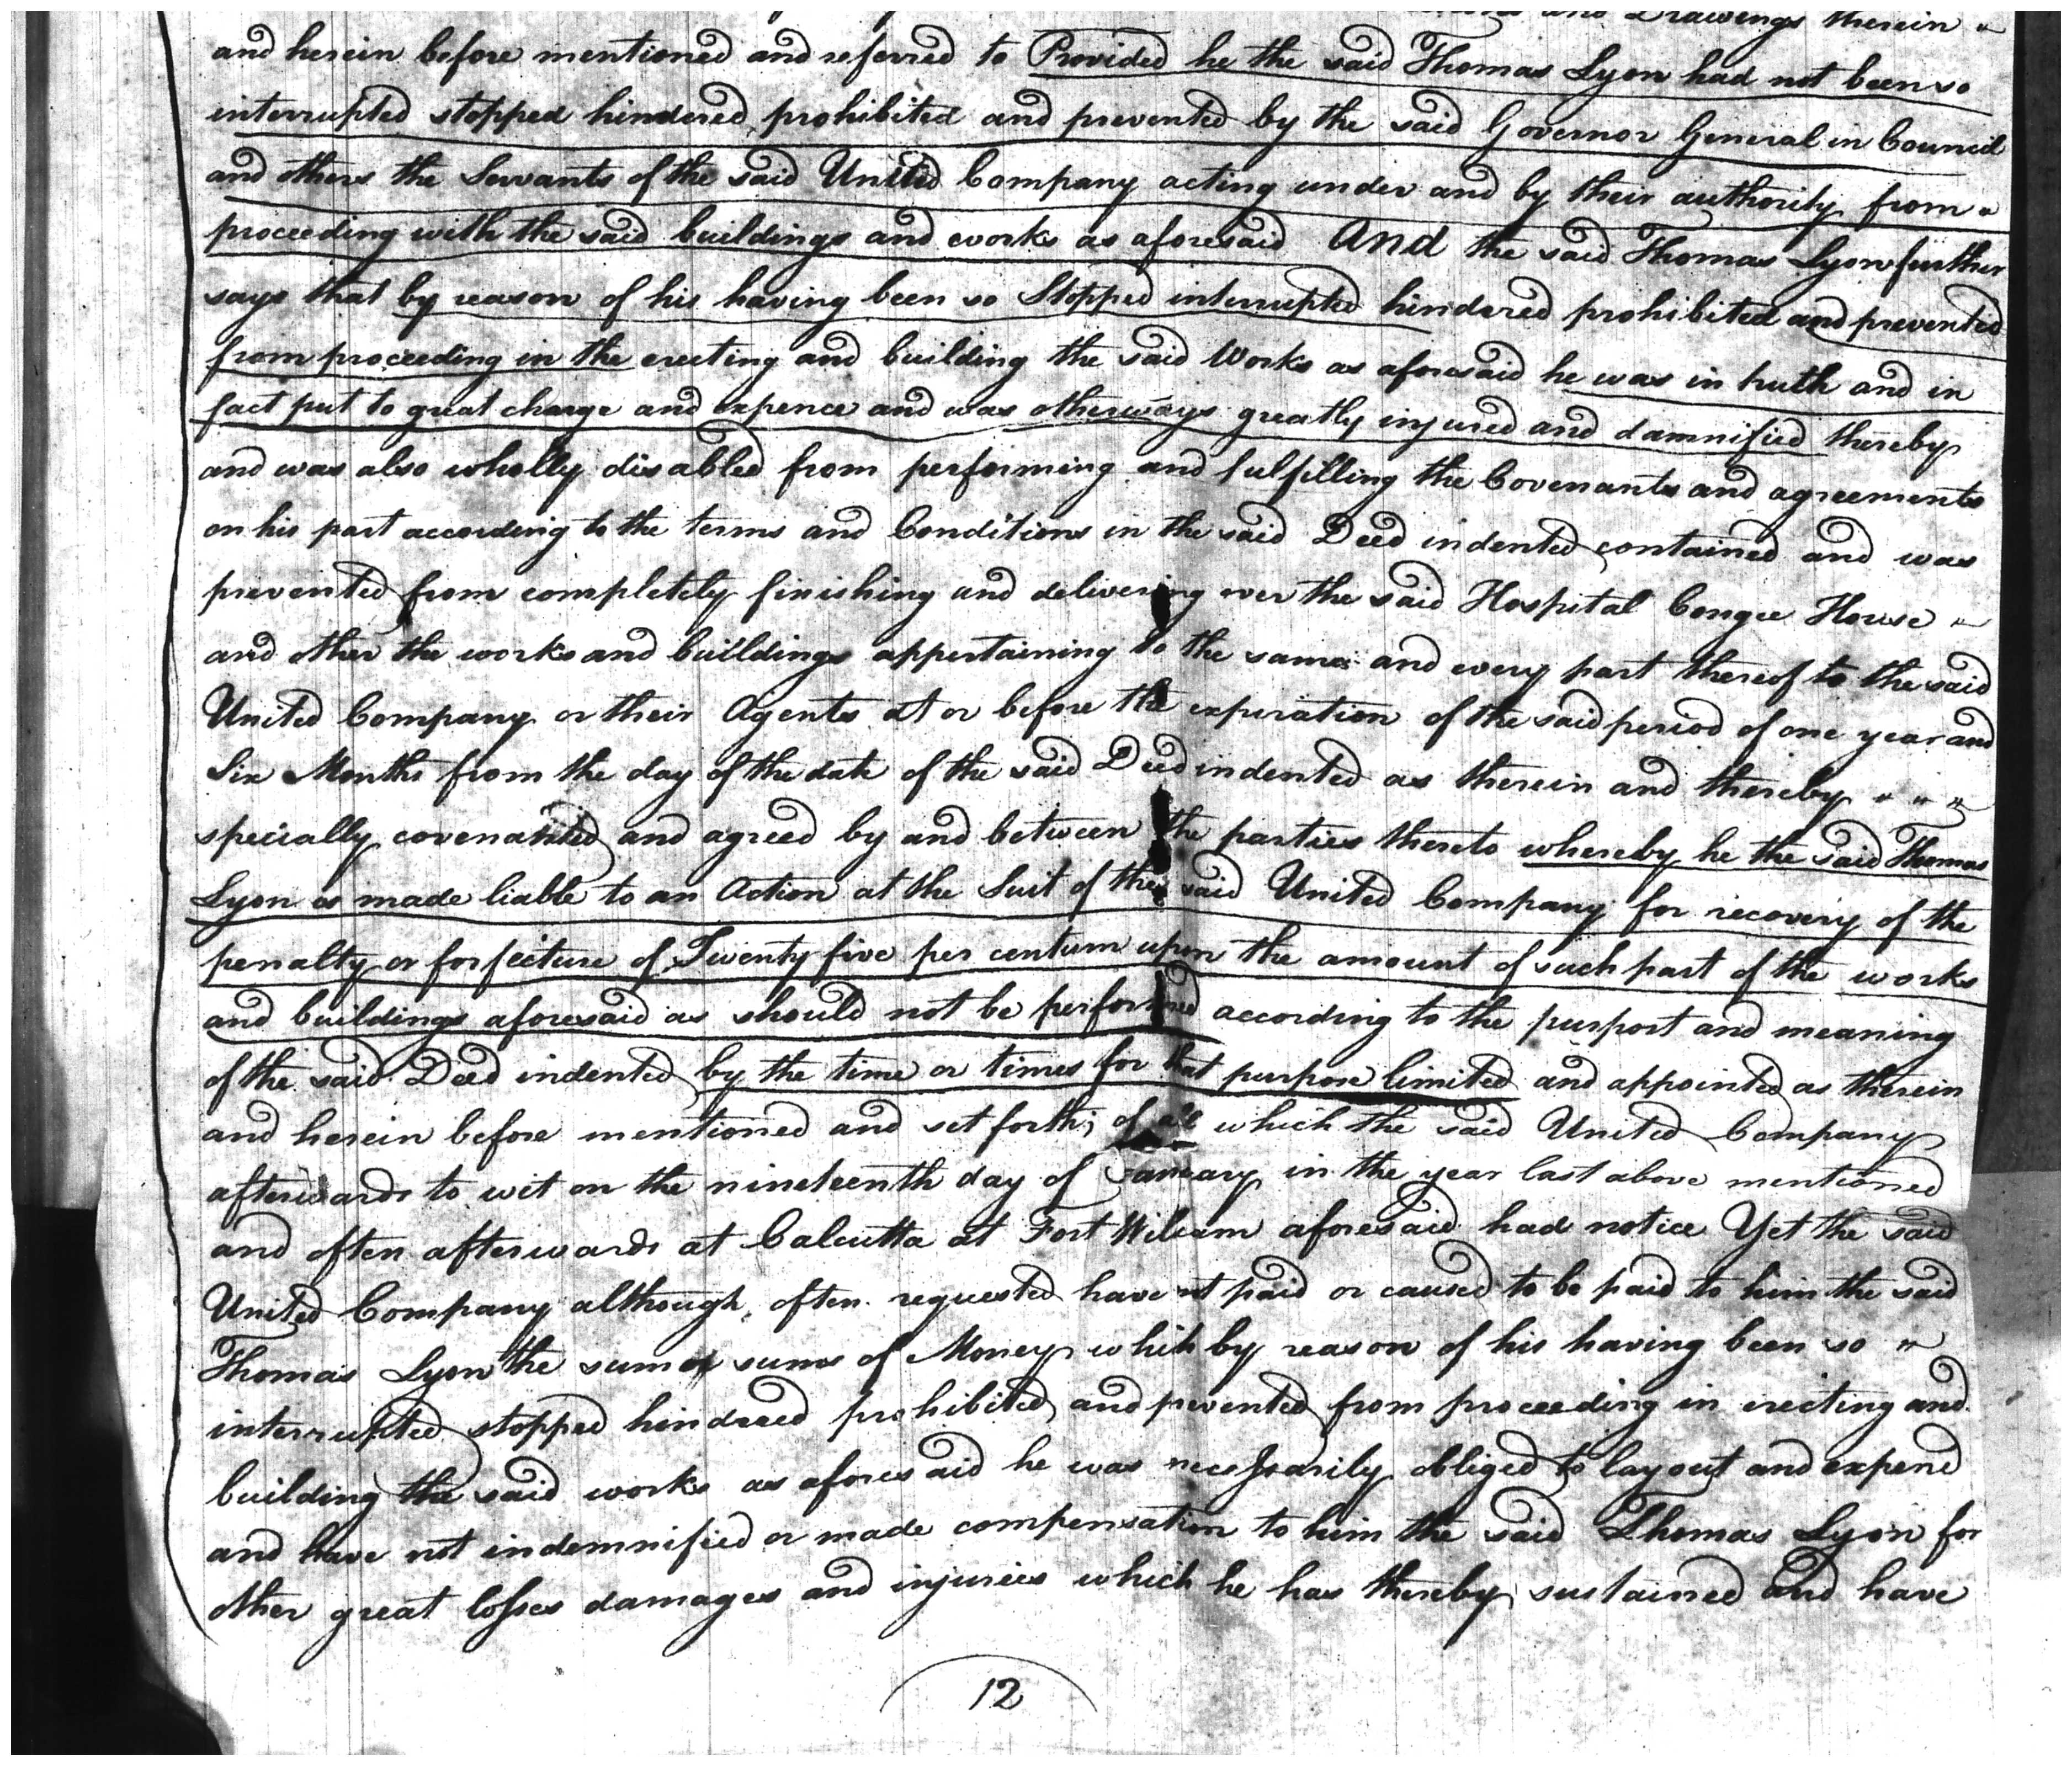 and Drawings therein "
and herein before mentioned and referred to Provided he the said Thomas Lyon had not been so
interrupted stopped hindered prohibited and prevented by the said Governor General in Council
and others the Servants of the said United Company acting under and by their authority from "
proceeding with the said buildings and works as aforesaid And the said Thomas Lyon further
says that by reason of his having been so Stopped interrupted hindered prohibited and prevented
from proceeding in the erecting and building the said Works as aforesaid he was in truth and in
fact put to great charge and expence and was otherways greatly injured and damnified thereby
and was also wholly disabled from performing and fulfilling the Covenants and agreements
on his part according to the terms and Conditions in the said Deed indented contained and was
prevented from completely finishing and delivering over the said Hospital Congee House "
and other the works and buildings appertaining to the same and every part thereof to the said
United Company or their Agents at or before the expiration of the said period of one year and
Six Months from the day of the date of the said Deed indented as therein and thereby " " "
specially covenanted and agreed by and between the parties thereto whereby he the said Thomas
Lyon is made liable to an Action at the Suit of the said United Company for recovery of the
penalty or forfeiture of Twenty five per centum upon the amount of such part of the works
and buildings aforesaid as should not be performed according to the purport and meaning
of the said Deed indented by the time or times for that purpose limited and appointed as therein
and herein before mentioned and set forth; of all which the said United Company
afterwards to wit on the nineteenth day of January in the year last above mentioned
and often afterwards at Calcutta at Fort William aforesaid had notice Yet the said
United Company although often requested have not paid or caused to be paid to him the said
Thomas Lyon the sum or sums of Money which by reason of his having been so "
interrupted stopped hindered prohibited and prevented from proceeding in erecting and
building the said works as aforesaid he was necessarily obliged to lay out and expend
and have not indemnified or made compensation to him the said Thomas Lyon for
other great losses damages and injuries which he has thereby sustained and have
12